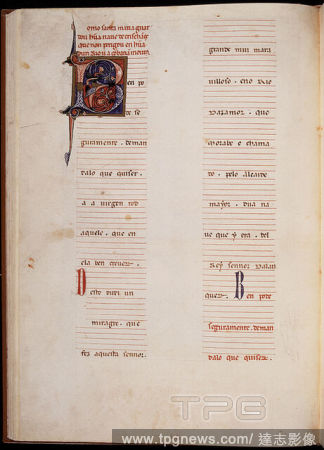 omo santa maria guar
dou hũa naue de crischãos
que non perigou en hũa
B en po
de se
guramente. deman
dalo que quiser.
a a uirgen tod
aquele. que en
ela ben creuer.
D esto direi un
miragre. que
fez aquesta sennor.
grande mui mara
uilloso. eno Rio
dazamor. que
morabe e chama
do. pelo alcaide
mayor. dũa na
ue que y era. del
Rey sennor dalan
quer. B en pode
seguramente. deman
dalo que quiser.
TPG
www.tpgnews.com／達志影像